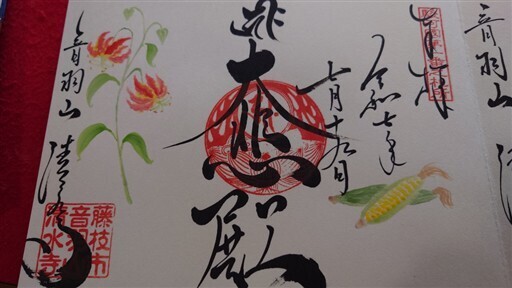 奉拝
令和七年
七月十九日
大悲殿
音羽山
清水寺
藤枝市
音羽山
清水寺
音羽山